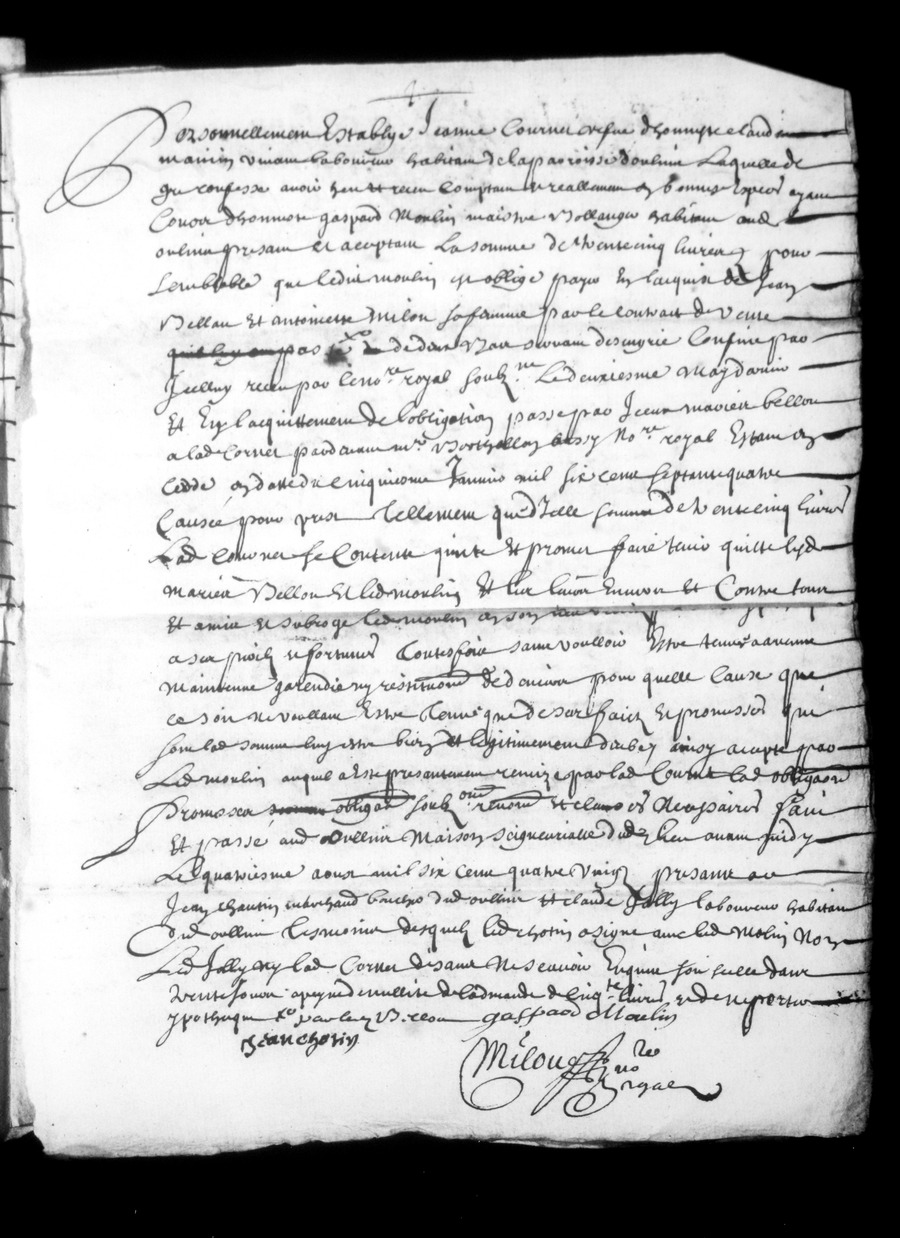 Personnellement Establye Jeanne Cornet vefue dhonneste claude
marin vivant laboureur habitant de la parroisse doullin Laquelle de
gre confesse avoir heu et receu Comptant et reallement en bonnes especes ayant
Cours dhonneste gaspard Moulin maistre Bollanger habitant aud
oullin presant et aceptant La somme de trente cinq livres pour
semblable que ledit moulin est oblige payer En lacquit de Jean
Bellon Et antoinette Milon sa femme par le contract de vente
pas de deux confine par
Jcelluy receu par le no.re royal soubz.ne Le deuxiesme May dernier
Et En lacquittement de lobligation passe par Jceux mariez bellon
a lad Cornet pardevant m.e no.re royal Estant en
cedde en datte du cinquiesme Janvier mil six cent septante quatre
Causée pour prest Tellement que dicelle somme de trente cinq livres
Lad Cornet se Contente quitte Et promet faire tenir quitte lesd
mariez Bellon Et led moulin Et les leurs Envers et Contre tous
Et a mis et subroge led moulin en son
a ses perilz et fortunes Toutesfois sans voulloir Estre tenue a aucune
maintenue garendie ny restitution de deniers pour quelle Cause que
ce soit ne voullant Estre Tenue que de ses faicts Et promesses qui
sont lad somme luy estre bien Et legitimement deube ainsy acepte par
Led moulin auquel a Este presantement remize par lad Cornet lad obligaon
Promesses obligaon soubz.ons renons Et clauses Necessaires faict
Et passé aud Oullin Maison Seigneurialle dud lieu avant midy
Le quatriesme aoust mil six cent quatre vingt presants
Jean chautin marchand boucher dud oullin Et claude Jolly laboureur habitant
dud oullin Tesmoins desquelz led chotin a signe avec led Molin Non
Led Jolly ny lad Cornet disant Ne scavoir Enquis soit seelle dans
trente jours a peyne de nullite et de lamande de cinq.te livres et de ne porter
ypotheque gaspard Moulin
Jean chotin
Milon no.re
royal